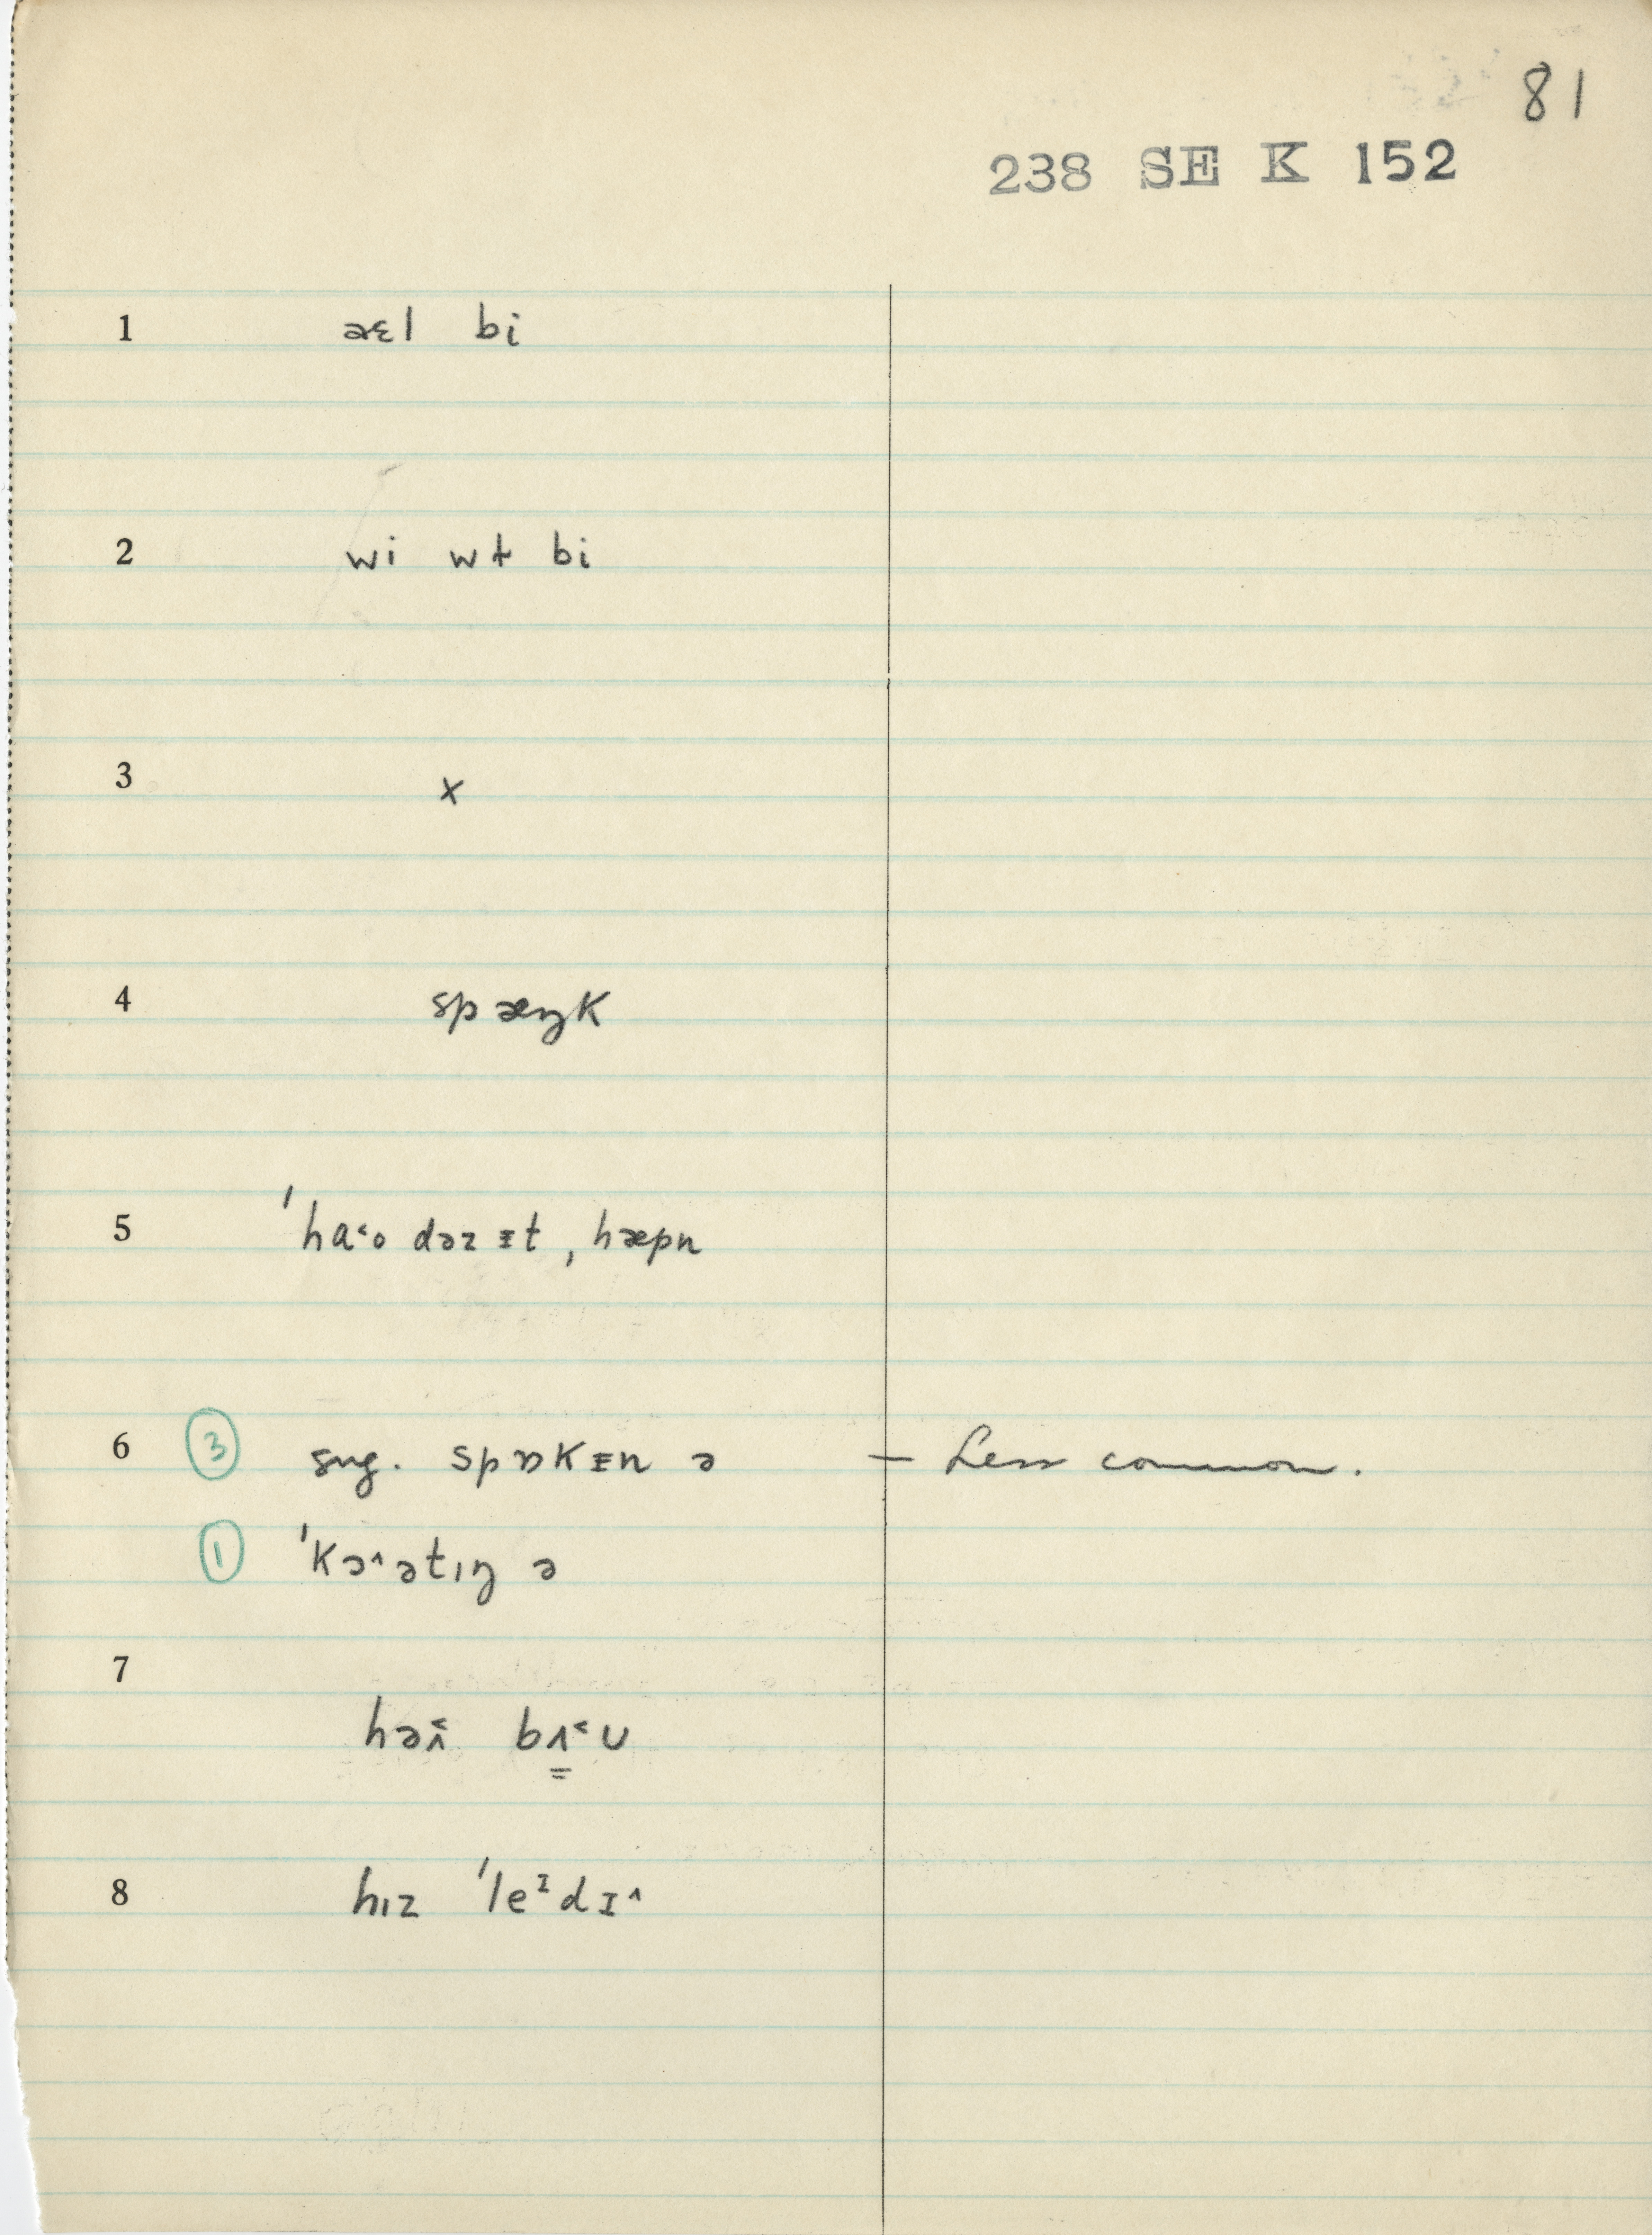 81
238 SE K 152
1 æɛl bi
2 wi wɫ bi
3 x
4 spæŋk
5 ˈhɑ˂o dəz ᵻt, hæpn
6 ③ sug. spɒkᵻn ə — Less common.
① ˈkɔ˄ətıŋ ə
7 bʌ̳˂ʊ
8 hız ˈleᶦdɪ˄